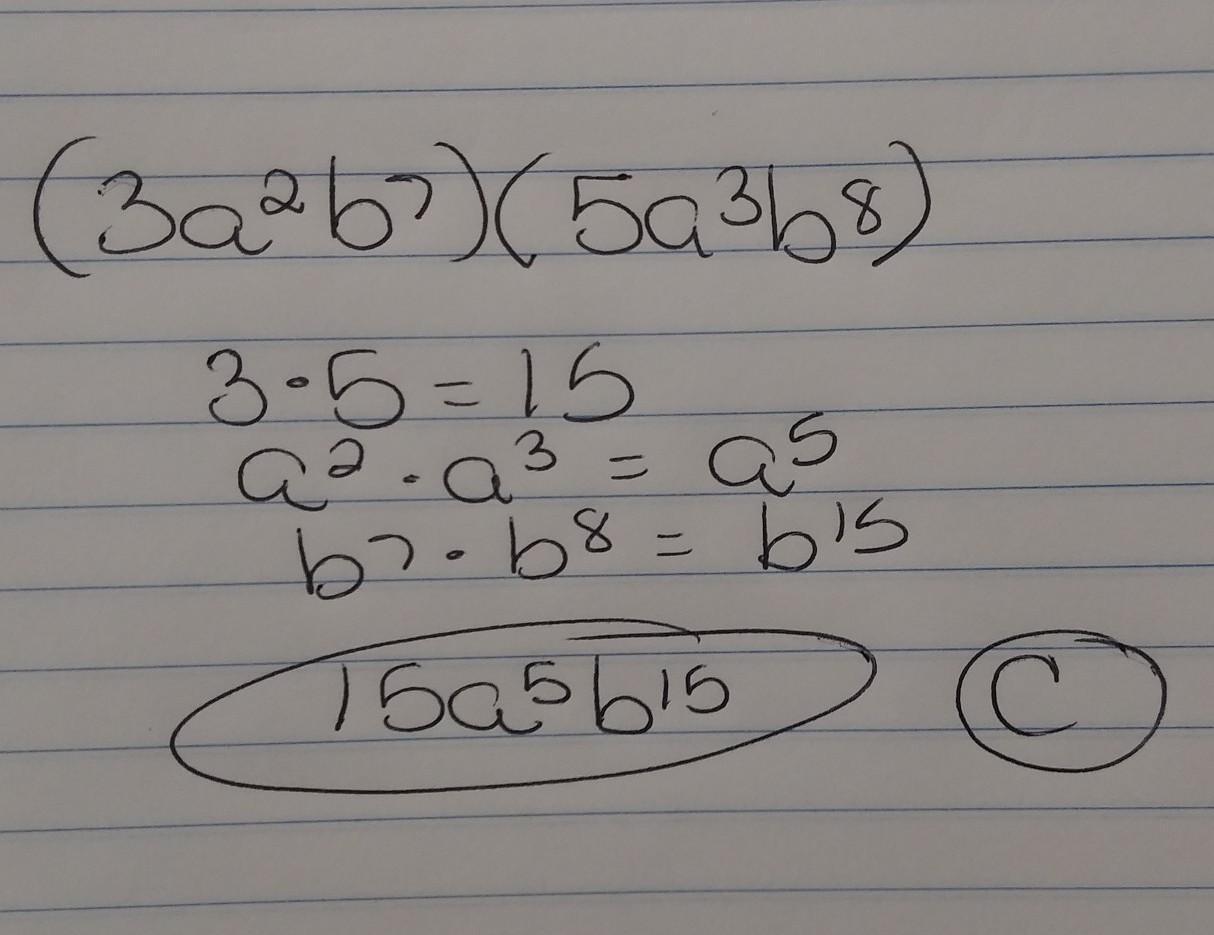 (3a²b⁷)(5a³b⁸)
3·5=15
a²·a³ = a⁵
b⁷·b⁸ = b¹⁵
15a⁵b¹⁵ C